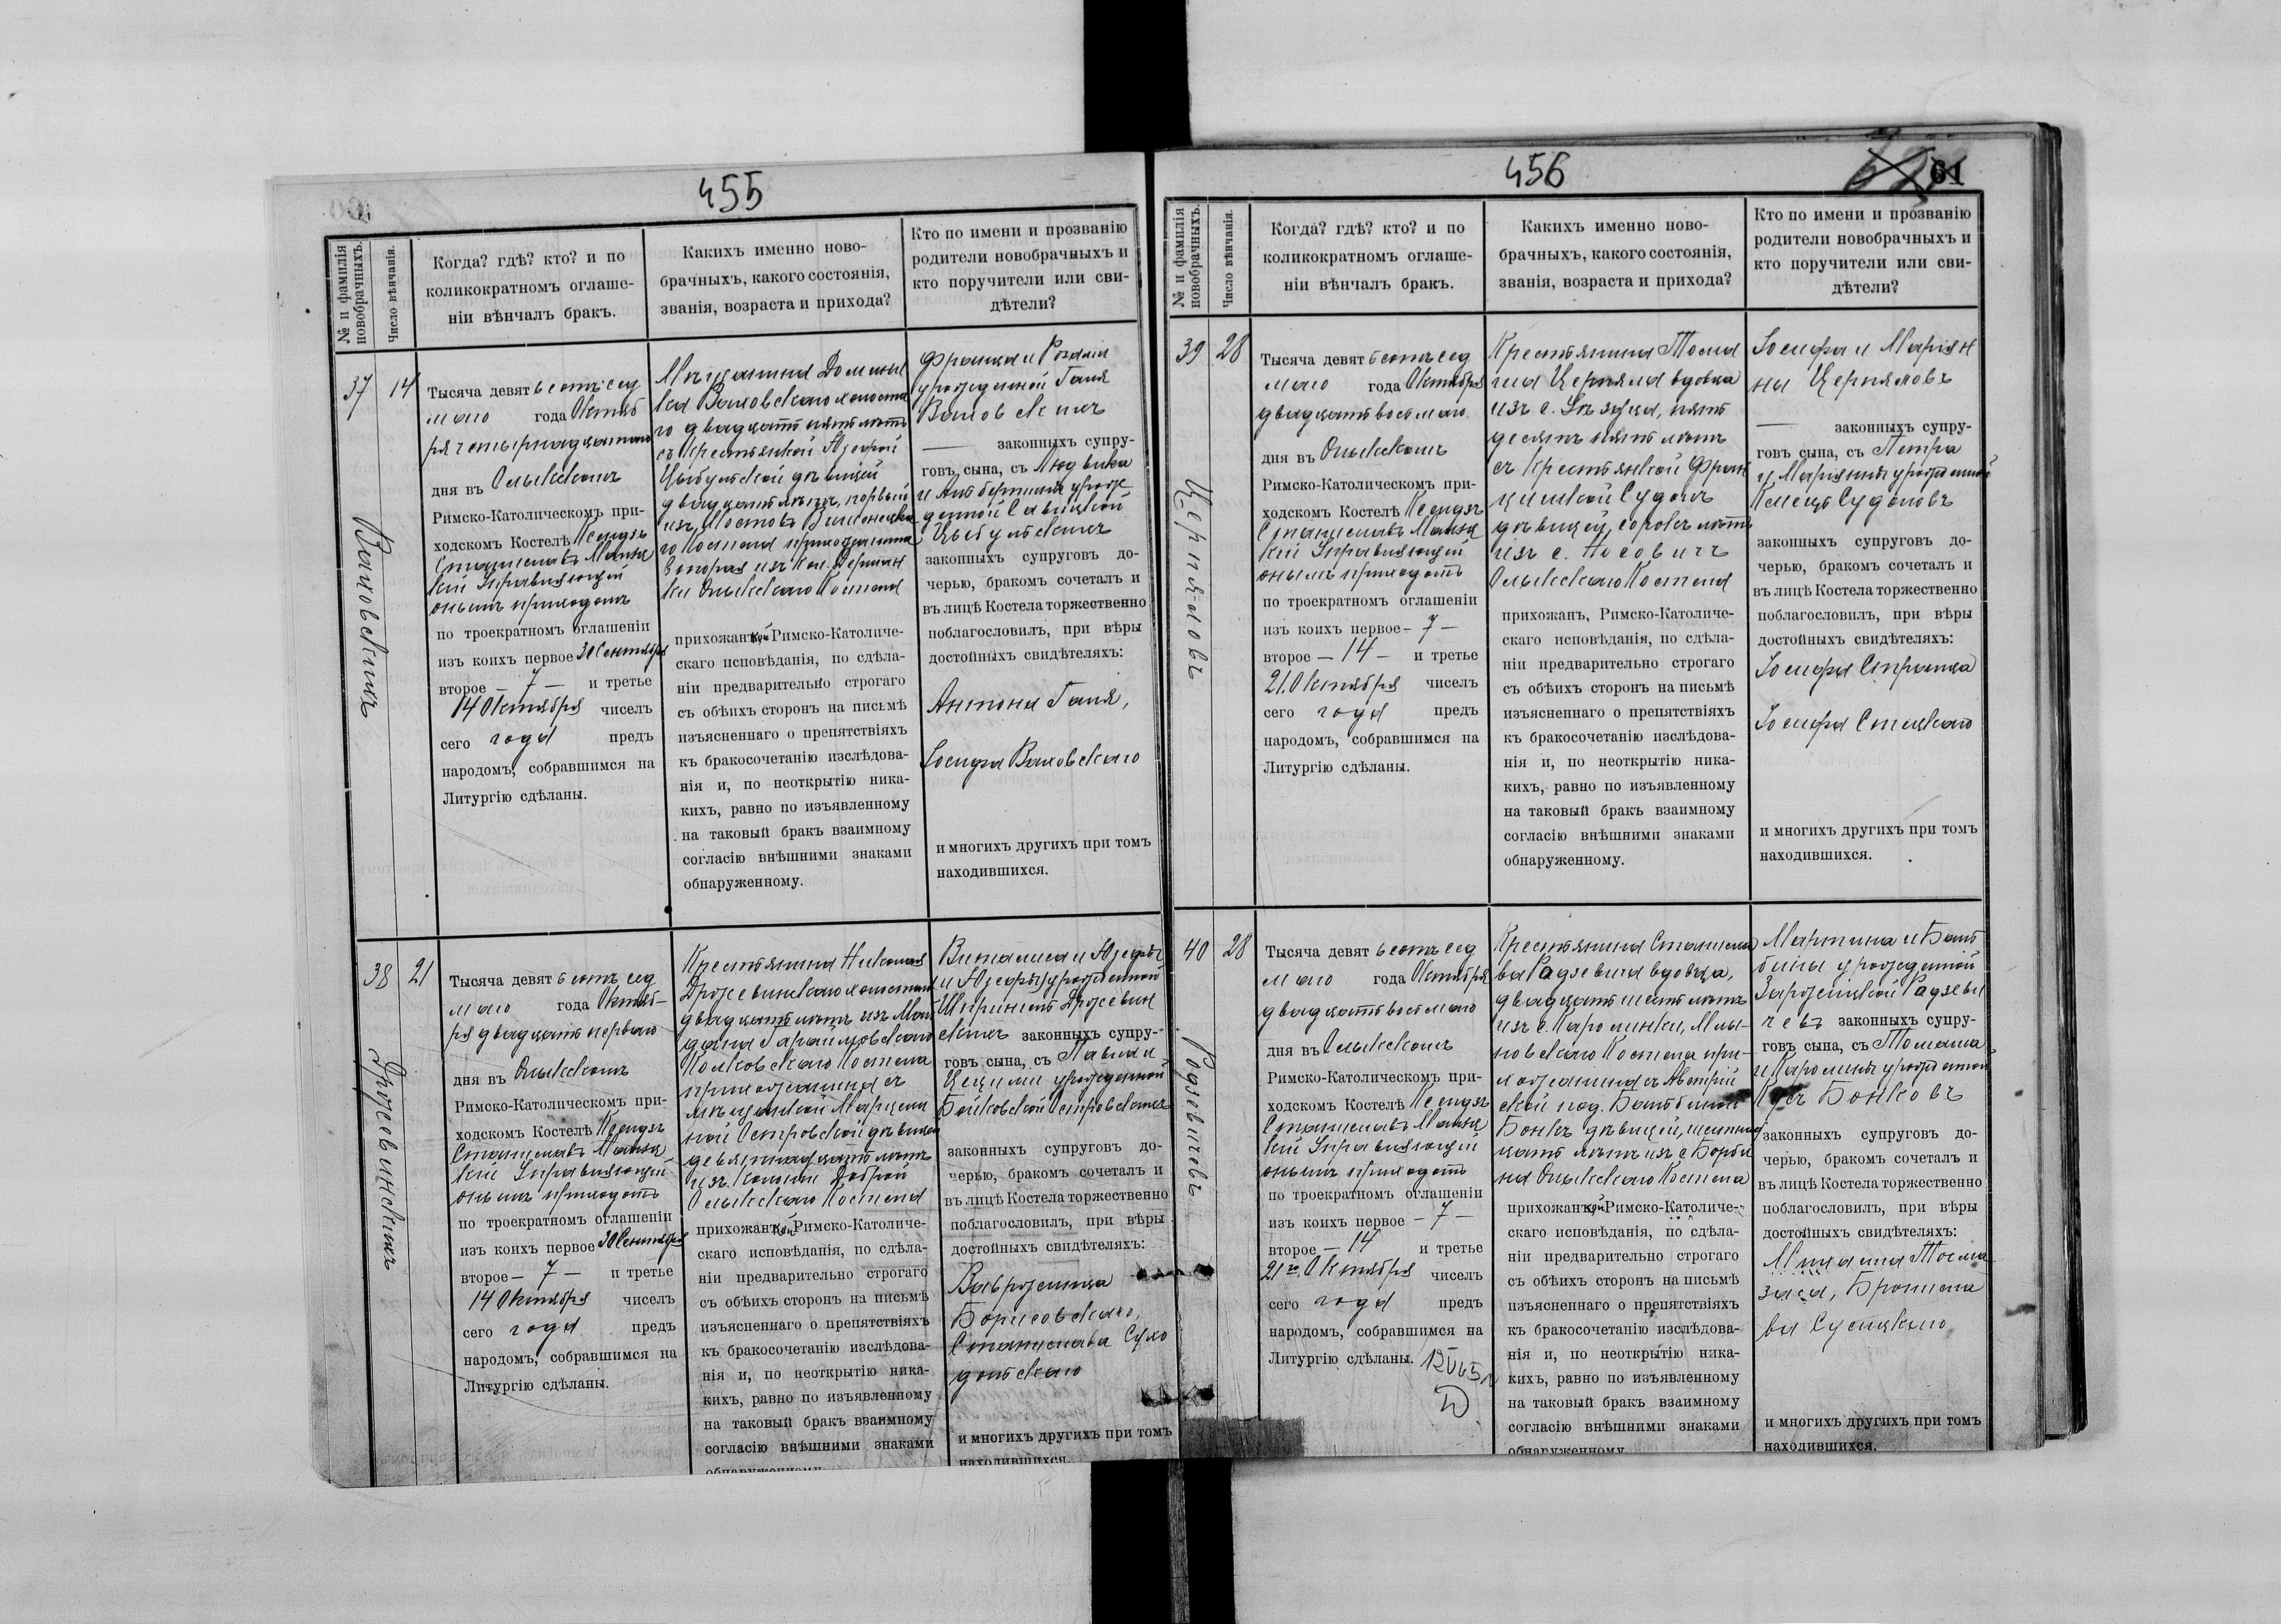 455
№ и фамилія
новобрачныхъ.
Число вѣнчанія.
Когда? гдѣ? кто? и по
коликократномъ оглаше-
ніи вѣнчалъ бракъ.
Каких­ъ именно ново-
брачныхъ, какого состоянія,
званія, возраста и прихода?
Кто по имени и прозванію
родители новобрачныхъ и
кто поручители или сви-
дѣтели?
37
14
Ваховскихъ
Тысяча девятьсотъ сед
маго года Октяб
ря четырнадцатаго
дня въ Олыкскомъ
Римско-Католическомъ при-
ходскомъ Костелѣ Ксендзъ
Станиславъ
Управляющій
онымъ приходомъ
по троекратномъ оглашеніи
изъ коихъ первое 30 Сентября
второе – 7 – и третье
14 Октября чиселъ
сего года предъ
народомъ, собравшимся на
Литургію сдѣланы.
Мѣщанина Домини
ка Ваховскаго холоста
го двадцать пять лѣтъ
съ крестьянкой Юзефой
Цыбульской дѣвицей
двадцать лѣтъ, первый
изъ Мостовъ
го Костела прихожанина
вторая изъ Кол. Дерман
ки Олыкскаго Костела
прихожан кой Римско-Католиче-
скаго исповѣданія, по сдѣла-
ніи предварительно строгаго
съ обѣихъ сторонъ на письмѣ
изъясненнаго о препятствіяхъ
къ бракосочетанію изслѣдова-
нія и, по неоткрытію ника-
кихъ, равно по изъявленному
на таковый бракъ взаимному
согласію внѣшними знаками
обнаруженному.
Франца и Розаліи
урожденной Галя
Ваховскихъ
законныхъ супру-
говъ, сына, съ Людвика
и Альбертины урож
денной Савицкой
Цыбульскихъ
законныхъ супруговъ до-
черью, бракомъ сочеталъ и
въ лицѣ Костела торжественно
поблагословилъ, при вѣры
достойныхъ свидѣтеляхъ:
Антона Галя,
Іосифа Ваховскаго
и многихъ другихъ при томъ
находившихся.
38
21
Држевинскихъ
Тысяча девятьсотъ сед
маго года Октяб-
ря двадцать перваго
дня въ Олыкскомъ
Римско-Католическомъ при-
ходскомъ Костелѣ Ксендзъ
Станиславъ
Управляющій
онымъ приходомъ
по троекратномъ оглашеніи
изъ коихъ первое 30 Сентября
второе – 7 – и третье
14 Октября чиселъ
сего года предъ
народомъ, собравшимся на
Литургію сдѣланы.
Крестьянина Николая
Држевинскаго холостаго
двадцать лѣтъ изъ Май
дана
Колковскаго Костела
прихожанина съ
мѣщанской Марцели
ной Островской дѣвицей
девятнадцать лѣтъ
изъ Колоніи Доброй
Олыкскаго Костела
прихожан кой Римско-Католиче-
скаго исповѣданія, по сдѣла-
ніи предварительно строгаго
съ обѣихъ сторонъ на письмѣ
изъясненнаго о препятствіяхъ
къ бракосочетанію изслѣдова-
нія и, по неоткрытію ника-
кихъ, равно по изъявленному
на таковый бракъ взаимному
согласію внѣшними знаками
обнаруженному.
и Юзефы урожденной
Држевин
скихъ законныхъ супру-
говъ сына, съ Павла и
Цециліи урожденной
Байковской Островскихъ
законныхъ супруговъ до-
черью, бракомъ сочеталъ и
въ лицѣ Костела торжественно
поблагословилъ, при вѣры
достойныхъ свидѣтеляхъ:
Вавржинца
Борисовскаго,
Станислава Сухо
дольскаго
и многихъ другихъ при томъ
находившихся.
456
61
№ и фамилія
новобрачныхъ.
Число вѣнчанія.
Когда? гдѣ? кто? и по
коликократномъ оглаше-
ніи вѣнчалъ бракъ.
Какихъ именно ново-
брачныхъ, какого состоянія,
званія, возраста и прихода?
Кто по имени и прозванію
родители новобрачныхъ и
кто поручители или сви-
дѣтели?
39
28
Церняковъ
Тысяча девятьсотъ сед
маго года Октября
двадцать восьмаго
дня въ Олыкскомъ
Римско-Католическомъ при-
ходскомъ Костелѣ Ксендзъ
Станиславъ
Управляющій
онымъ приходомъ
по троекратномъ оглашеніи
изъ коихъ первое – 7 –
второе – 14 – и третье
21 Октября чиселъ
сего года предъ
народомъ, собравшимся на
Литургію сдѣланы.
Крестьянина Тома
ша Церняка вдовца
изъ с. пять
десятъ пять лѣтъ
съ крестьянкой Фран
цишкой Судолъ
дѣвицей, сорокъ лѣтъ
изъ с. Носовичъ
Олыкскаго Костела
прихожан, Римско-Католиче-
скаго исповѣданія, по сдѣла-
ніи предварительно строгаго
съ обѣихъ сторонъ на письмѣ
изъясненнаго о препятствіяхъ
къ бракосочетанію изслѣдова-
нія и, по неоткрытію ника-
кихъ, равно по изъявленному
на таковый бракъ взаимному
согласію внѣшними знаками
обнаруженному.
Іосифа и Маріян
ны Церняковъ
законныхъ супру-
говъ сына, съ Петра
и Маріянны урожденной
Судоловъ
законныхъ супруговъ до-
черью, бракомъ сочеталъ и
въ лицѣ Костела торжественно
поблагословилъ, при вѣры
достойныхъ свидѣтеляхъ:
Іосифа
Іосифа
и многихъ другихъ при томъ
находившихся.
40
28
Радзевичевъ
Тысяча девятьсотъ сед
маго года Октября
двадцать восьмаго
дня въ Олыкскомъ
Римско-Католическомъ при-
ходскомъ Костелѣ Ксендзъ
Станиславъ
Управляющій
онымъ приходомъ
по троекратномъ оглашеніи
изъ коихъ первое – 7 –
второе – 14 и третье
21го Октября чиселъ
сего года предъ
народомъ, собравшимся на
Литургію сдѣланы.
Крестьянина Станисла
ва Радзевича вдовца,
двадцать шесть лѣтъ
изъ с. Каролинки, Млы-
новскаго Костела при-
хожанина съ Австрій
ской под. Бальбиной
Бонкъ дѣвицей, шестнад
цать лѣтъ изъ с. Борби
на Олыкскаго Костела
прихожан кой Римско-Католиче-
скаго исповѣданія, по сдѣла-
ніи предварительно строгаго
съ обѣихъ сторонъ на письмѣ
изъясненнаго о препятствіяхъ
къ бракосочетанію изслѣдова-
нія и, по неоткрытію ника-
кихъ, равно по изъявленному
на таковый бракъ взаимному
согласію внѣшними знаками
обнаруженному
Мартина и Баль
бины урожденной
Зарожицкой Радзеви
чевъ законныхъ супру-
говъ сына, съ Томаша
и Каролины урожденной
Бонковъ
законныхъ супруговъ до-
черью, бракомъ сочеталъ и
въ лицѣ Костела торжественно
поблагословилъ, при вѣры
достойныхъ свидѣтеляхъ:
Бронисла
ва Сусицкаго
и многихъ другихъ при томъ
находившихся.